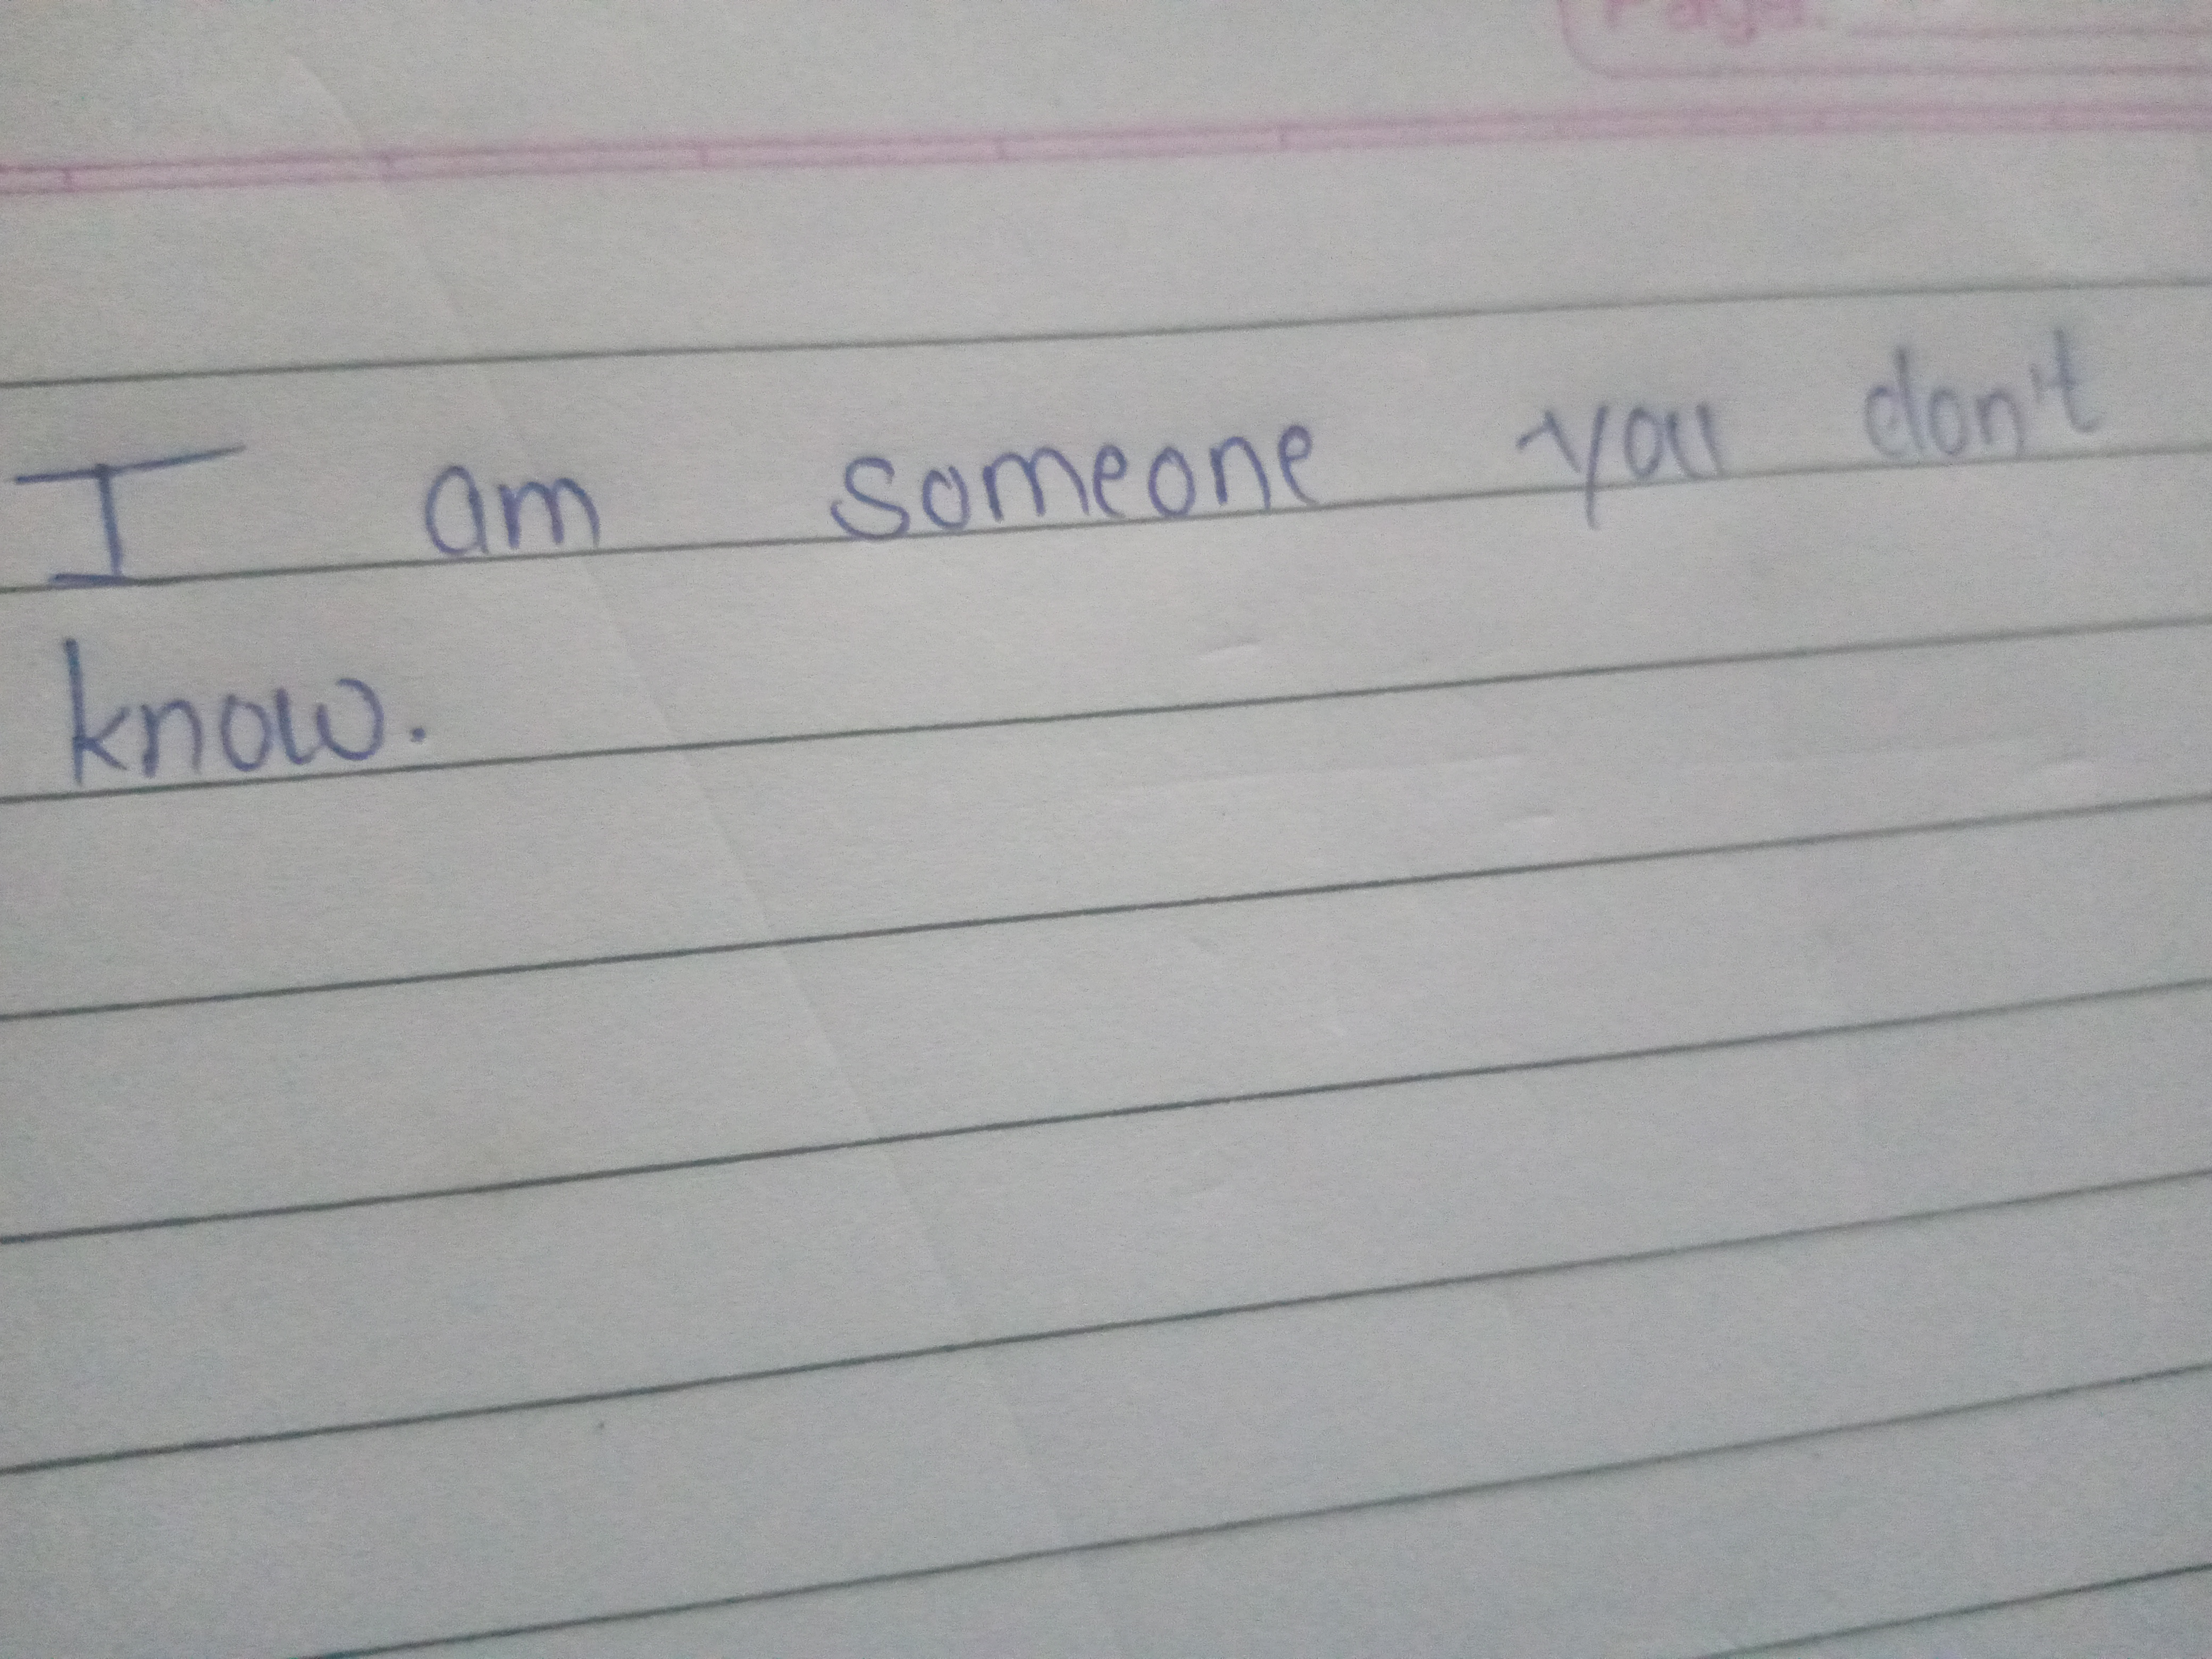 Page:
I am someone you don't
know.